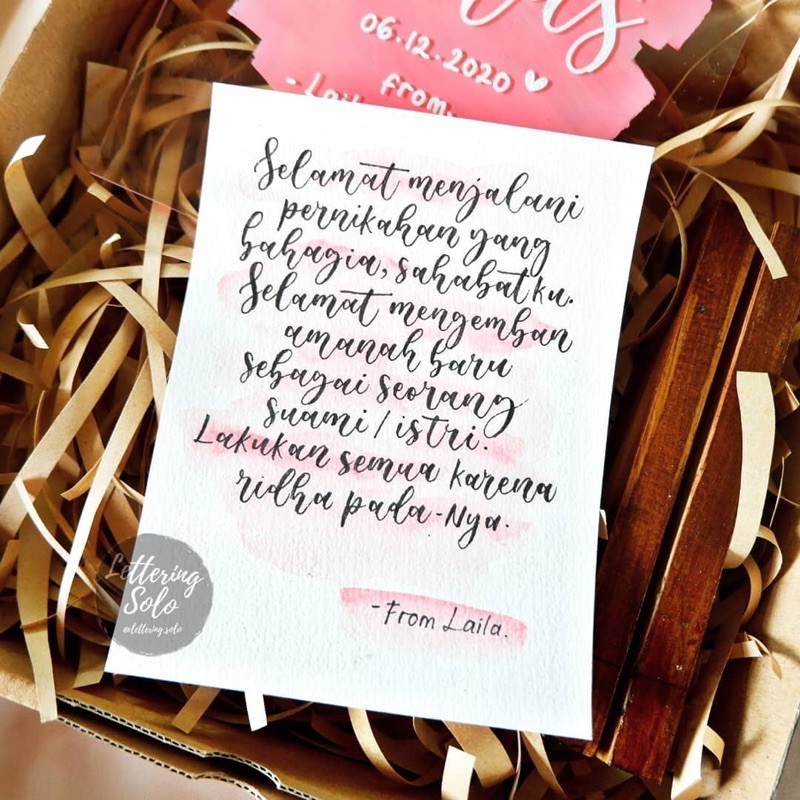 06.12.2020
from.
Selamat menjalani
pernikahan yang
bahagia, sahabatku.
Selamat mengemban
amanah baru
sebagai seorang
suami / istri.
Lakukan semua karena
ridha pada-Nya.
-From Laila.
Lettering
Solo
@lettering.solo